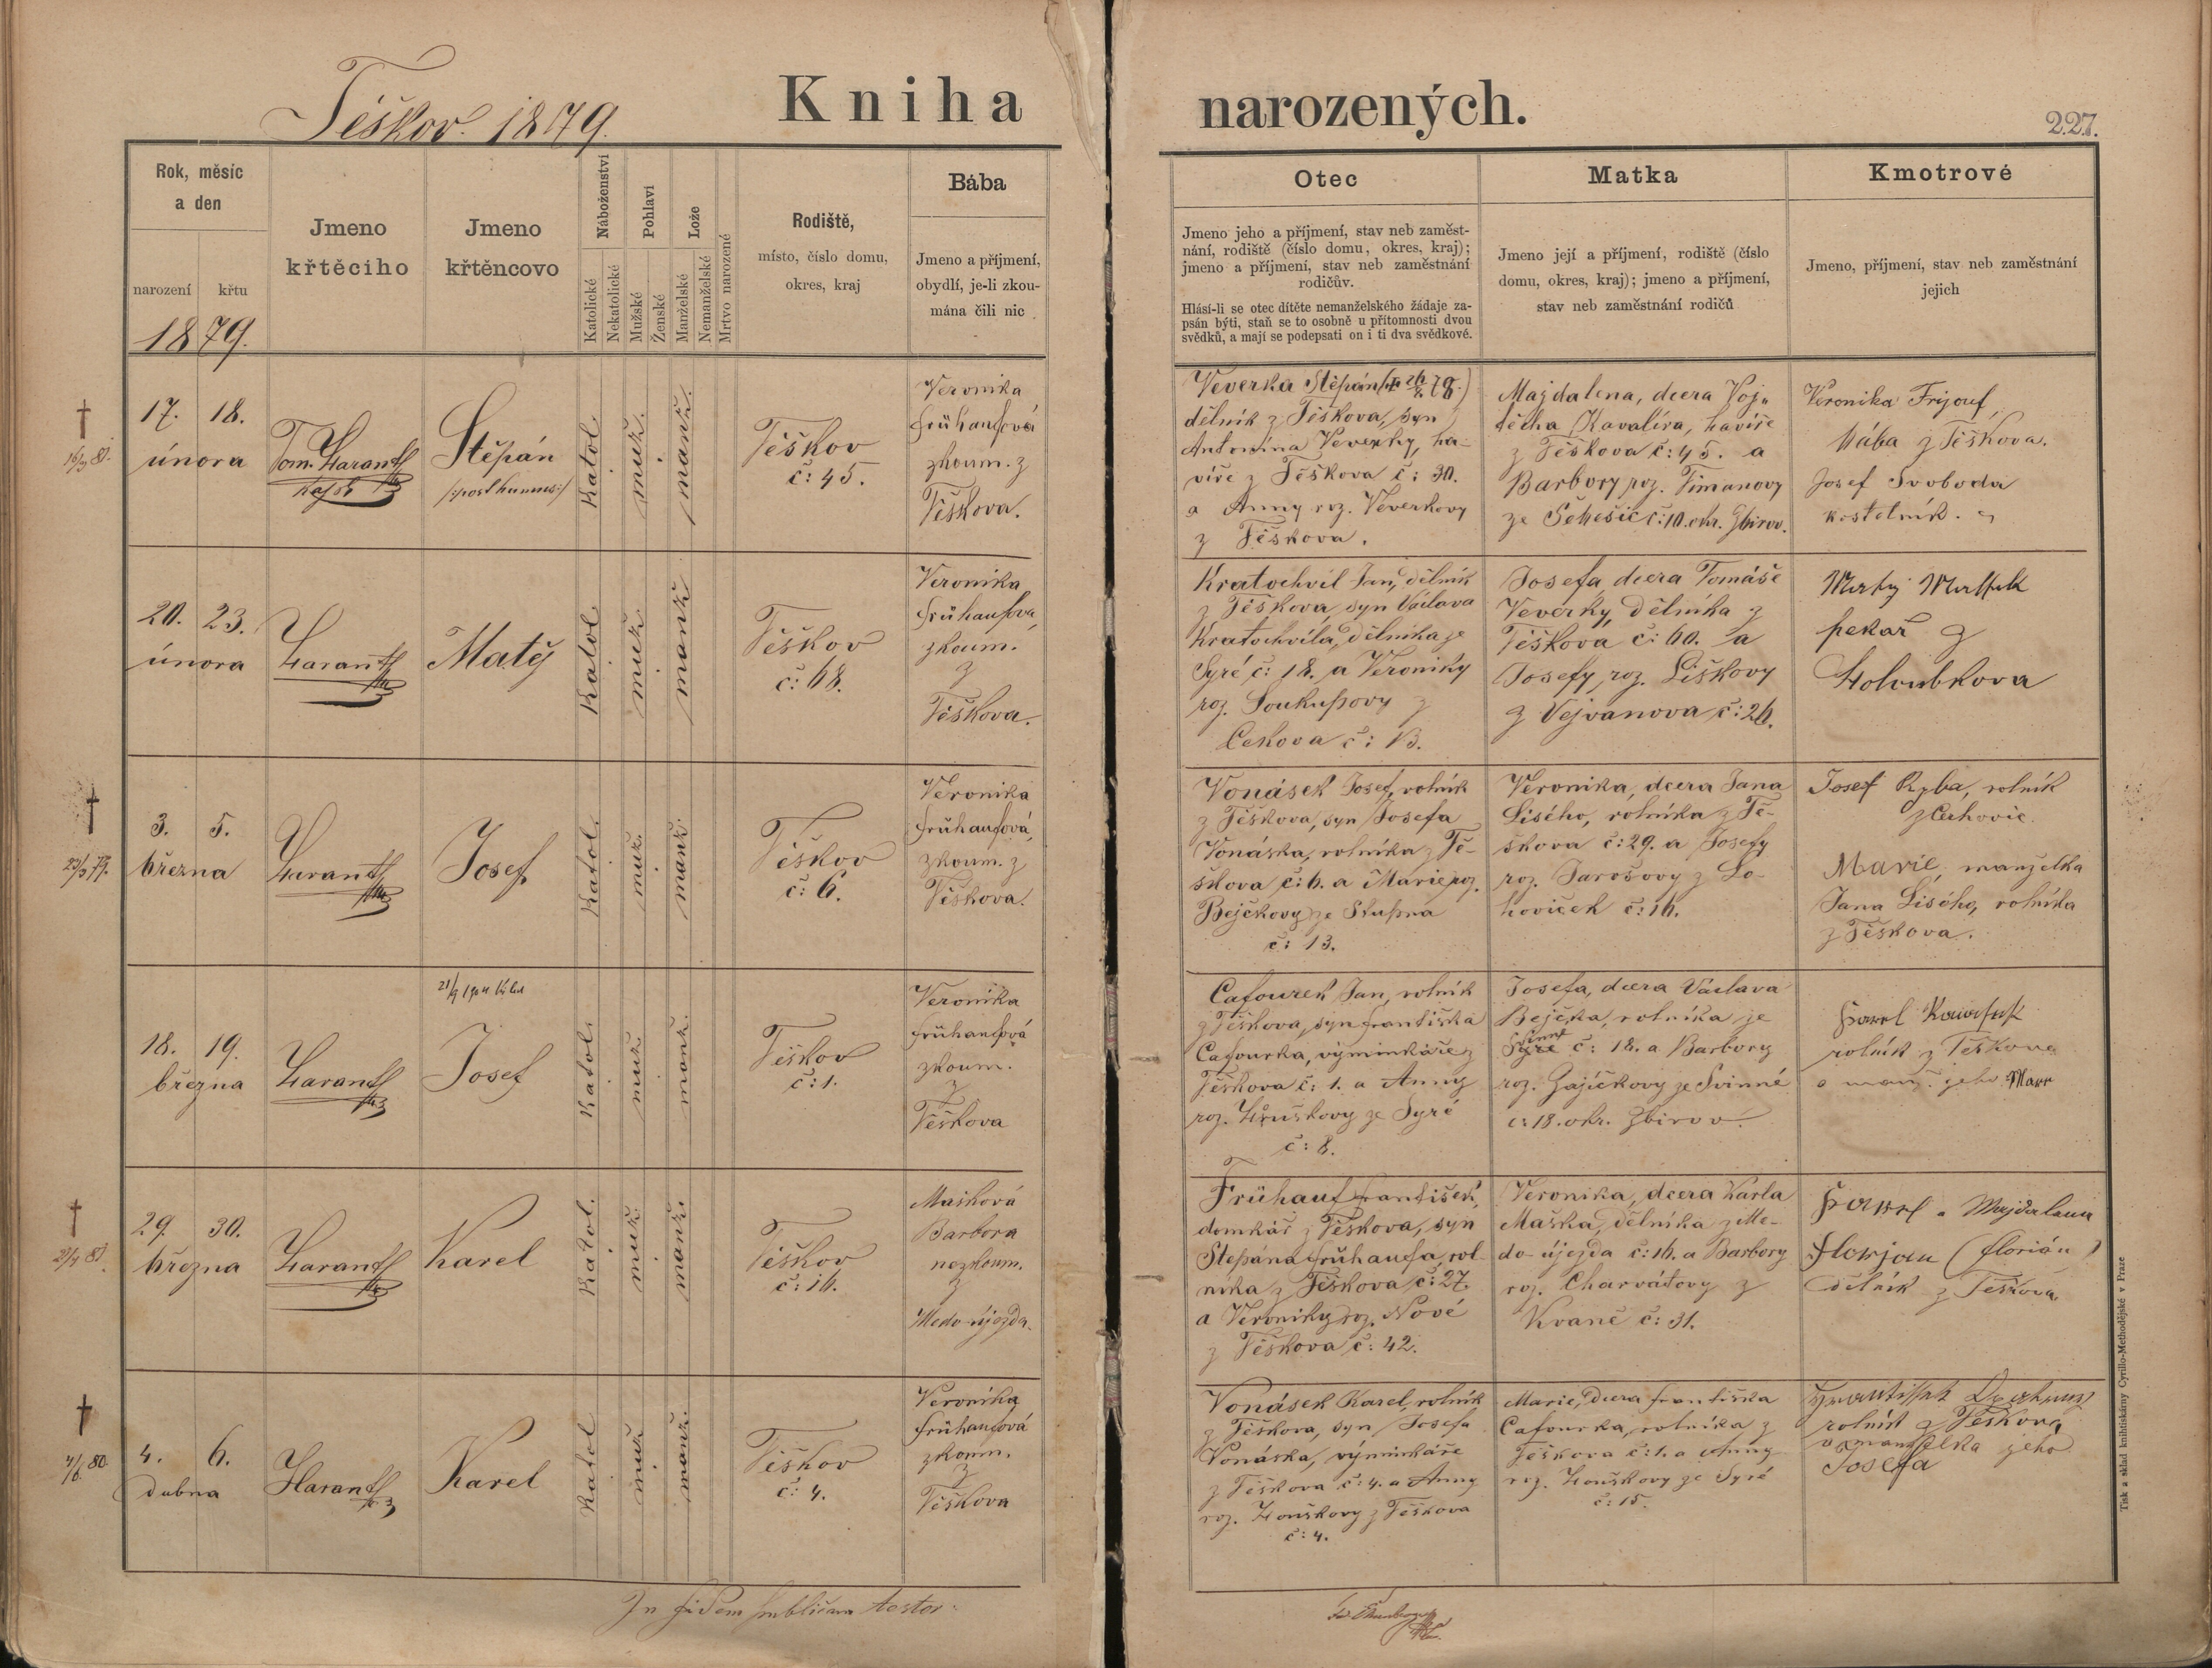 Těškov. 1879.
Kniha narozených.
227.
Rok, měsíc
a den
narození
křtu
1879.
Jmeno
křtěcího
Jmeno
křtěncovo
Náboženství
Katolické
Nekatolické
Pohlaví
Mužské
Ženské
Lože
Manželské
Nemanželské
Mrtvo narozené
Rodiště,
místo, číslo domu,
okres, kraj
Bába
Jmeno a příjmení,
obydlí, je-li zkou-
mána čili nic
Otec
Jmeno jeho a příjmení, stav neb zaměst-
nání, rodiště (číslo domu, okres, kraj);
jmeno a příjmení, stav neb zaměstnání
rodičův.
Hlásí-li se otec dítěte nemanželského žádaje za-
psán býti, staň se to osobně u přítomnosti dvou
svědků, a mají se podepsati on i ti dva svědkové.
Matka
Jmeno její a příjmení, rodiště (číslo
domu, okres, kraj); jmeno a příjmení,
stav neb zaměstnání rodičů
Kmotrové
Jmeno, příjmení, stav neb zaměstnání
jejich
17. 18.
února
Tom. Harant
Štěpán
/:posthumus:/
Katol.
muž.
manž.
Těškov
č: 45.
Veronika
Frühaufová
zkoum. z
Těškova.
Veverka Štěpán
dělník z Těškova, syn
Antonína Veverky, ha-
víře z Těškova č: 30.
a Anny roz. Veverkovy
z Těškova.
Majdalena, dcera Voj„
těcha Kavalíra, havíře
z Těškova č: 45. a
Barbory roz. Timanovy
ze č: 10. okr. Zbirov.
Veronika
bába z Těškova.
Josef Svoboda
kostelník.
20. 23.
února
Harant
Matěj
Katol.
muž.
manž.
Těškov
č: 68.
Veronika
Frühaufova,
zkoum.
z
Těškova.
Kratochvíl Jan, dělník
z Těškova, syn Václava
Kratochvíla, dělníka ze
Syré č: 18. a Veroniky
roz. Soukupovy z
Cekova č: 13.
Josefa, dcera Tomáše
Veverky, dělníka z
Těškova č: 60. a
Josefy, roz. Liškovy
z Vejvanova č: 26.
pekař z
Holoubkova
3. 5.
března
Harant
Josef
Katol.
muž.
manž.
Těškov
č: 6.
Veronika
Frühaufová,
zkoum. z
Těškova.
Vonásek Josef, rolník
z Těškova, syn Josefa
Vonáska, rolníka z Tě-
škova č: 6. a Marie roz.
Bejčkovy ze Stupna
č: 13.
Veronika, dcera Jana
Lisého, rolníka z Tě-
škova č: 29. a Josefy
roz. Jarošovy z Lo-
hoviček č: 16.
Josef Ryba, rolník
Marie, manželka
Jana Lisého, rolníka
z Těškova.
18. 19.
března
Harant
Josef
Katol.
muž.
manž.
Těškov
č: 1.
Veronika
Frühaufová
zkoum.
z
Těškova
Cafourek Jan, rolník
z Těškova, syn Františka
Cafourka, výminkáře z
Těškova č: 1. a Anny
roz. Hruškovy ze Syré
č: 8.
Josefa, dcera Václava
Bejčka, rolníka ze
Svinné
Syré č: 18. a Barbory
roz. Zajíčkovy ze Svinné
č: 18. okr. Zbirov.
rolník z Těškova
a manž. jeho Marie
29. 30.
března
Harant
Karel
Katol.
muž.
manž.
Těškov
č: 16.
Mašková
Barbora
nezkoum.
z
Medo-újezda.
Frühauf František,
domkář z Těškova, syn
Štěpána Frühaufa, rol-
níka z Těškova č: 27.
a Veroniky roz. Nové
z Těškova č: 42.
Veronika, dcera Karla
Maška, dělníka z Me-
do-újezda č: 16. a Barbory
roz. Charvátovy z
Kvaně č: 31.
a Majdalena
Florjan (Florián)
dělník z Těškova.
4. 6.
dubna
Harant
Karel
Katol
muž
manž.
Těškov
č: 4.
Veronika
Frühaufová
zkoum.
z
Těškova
Vonásek Karel, rolník
z Těškova, syn Josefa
Vonáska, výminkáře
z Těškova č: 4. a Anny
roz. Houškovy z Těškova
č: 4.
Marie, dcera Františka
Cafourka, rolníka z
Těškova č: 1. a Anny
roz. Houškovy ze Syré
č: 15.
rolník z Těškova
a manželka jeho
Josefa
In fidem publicam testor.
Tisk a sklad knihtiskárny Cyrillo-Methodějské v Praze